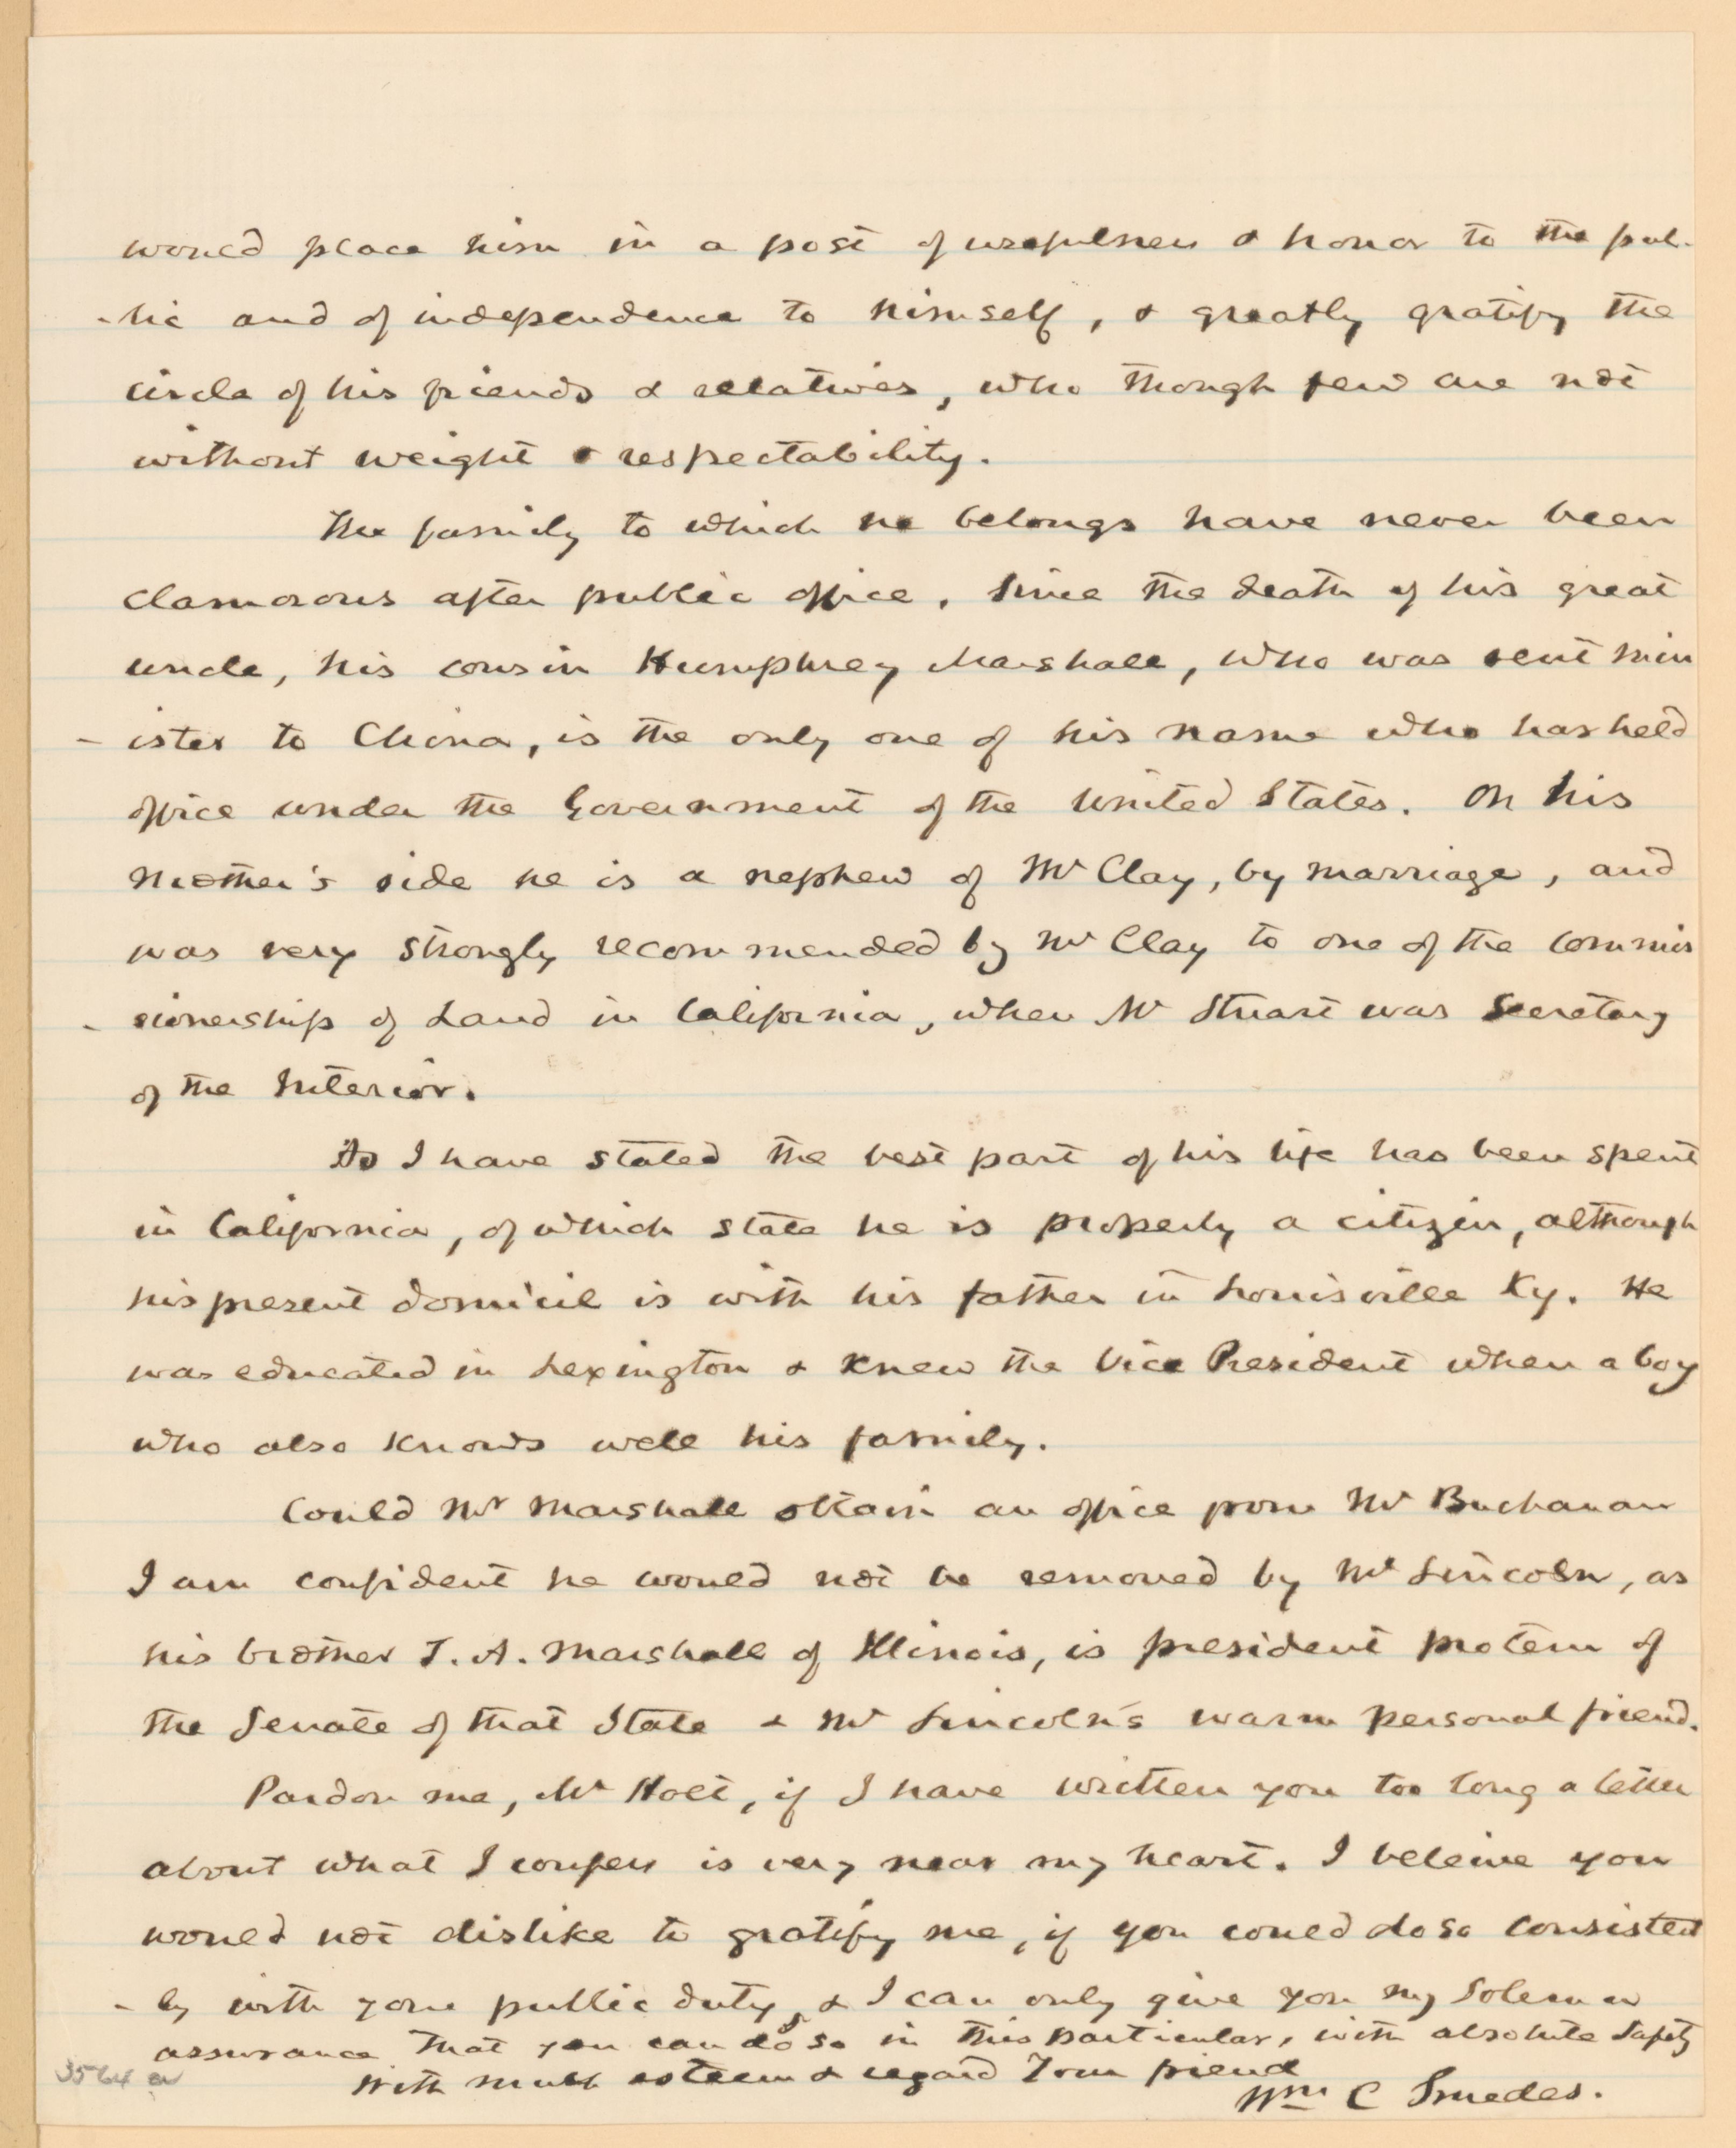 would place him in a post of usefulness & honor to the pub-
-lic and of independence to himself, & greatly gratify the
circle of his friends & relatives, who though few are not
without weight & respectability.
The family to which he belongs have never been
clamorous after public office. Since the death of his great
uncle, his cousin Humphrey Marshall, who was sent min
- ister to China, is the only one of his name who has held
office under the Government of the United States. On his
mother's side he is a nephew of Mr Clay, by marriage, and
was very strongly recommended by Mr Clay to one of the commis
- sionership of Land in California, when Mr Stuart was Secretary
of the Interior.
As I have stated the best part of his life has been spent
in California, of which state he is properly a citizen, although
his present domicil is with his father in Louisville Ky. He
was educated in Lexington & knew the Vice President when a boy
who also knows well his family.
Could Mr Marshall obtain an office from Mr Buchanan
I am confident he would not be removed by Mr Lincoln, as
his brother T. A. Marshall of Illinois, is president protem of
the Senate of that State & Mr Lincoln's warm personal friend.
Pardon me, Mr Holt, if I have written you too long a letter
about what I confess is very near my heart. I beleive you
would not dislike to gratify me, if you could do so consistent
- ly with your public duty, & I can only give you my solemn
assurance that you can do so in this particular, with absolute safety
With much esteem & regard Your friend
Wm C Smedes.
3564